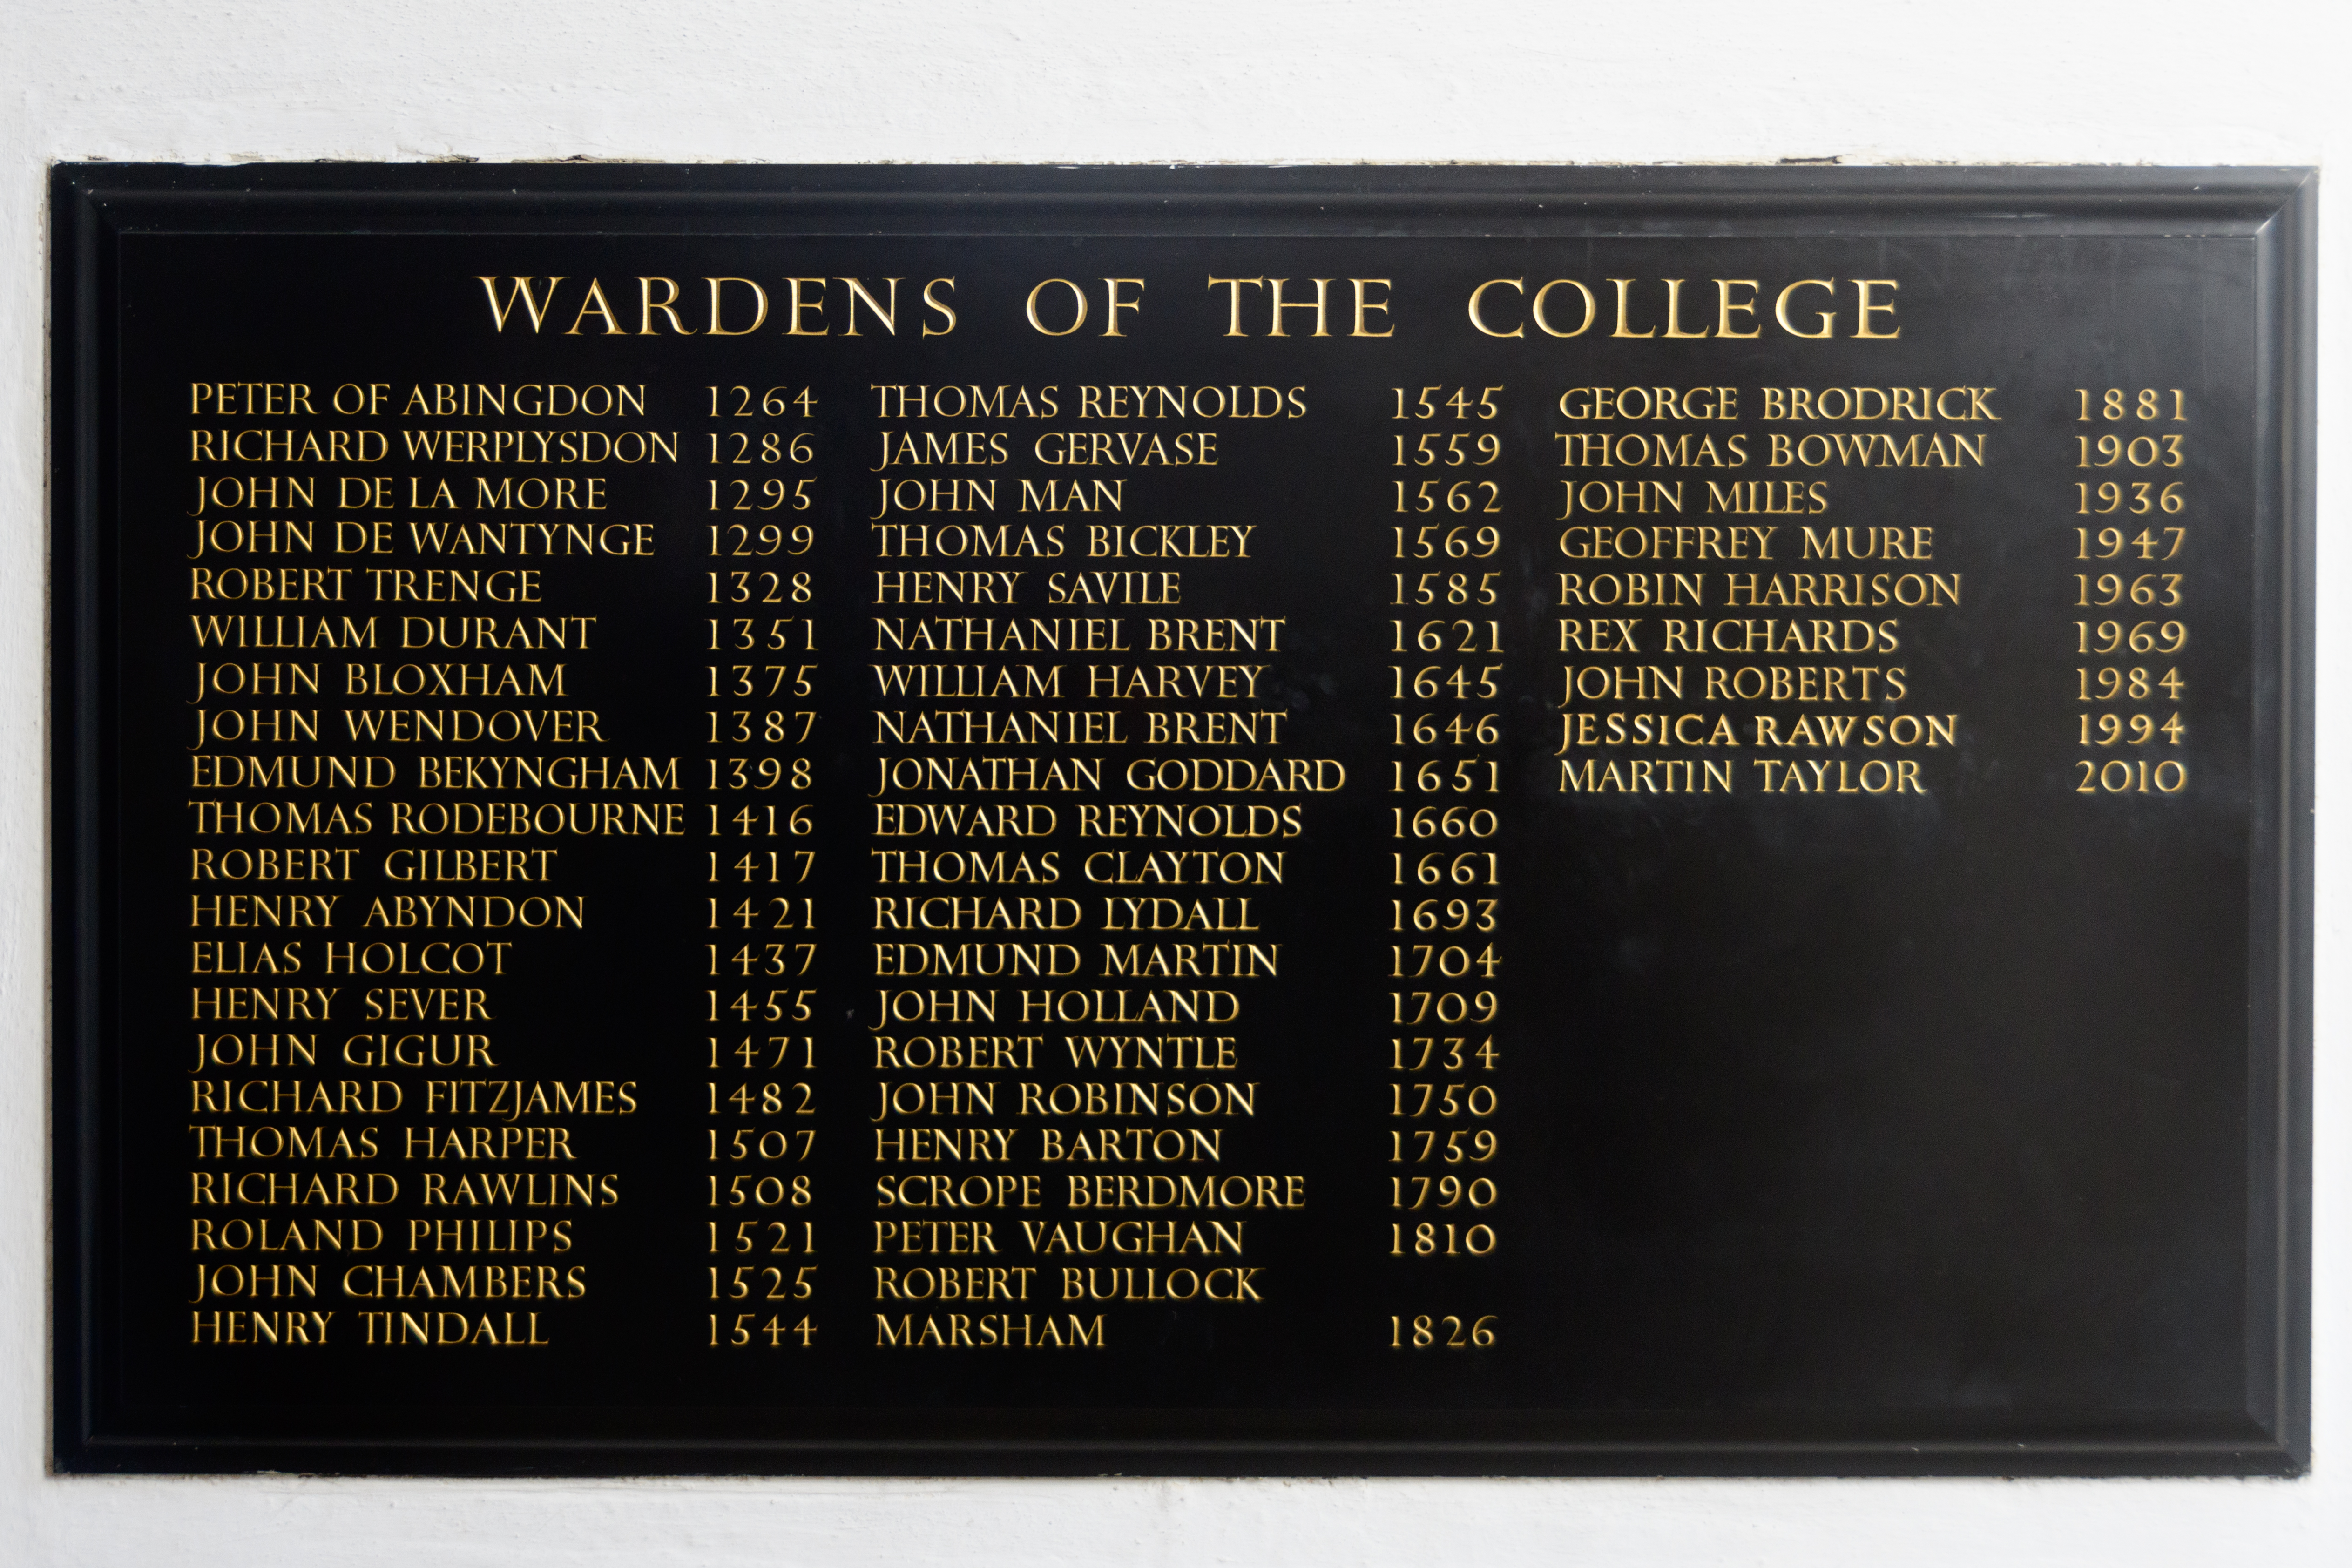 WARDENS OF THE COLLEGE
PETER OF ABINGDON 1264
RICHARD WERPLYSDON 1286
JOHN DE LA MORE 1295
JOHN DE WANTYNGE 1299
ROBERT TRENGE 1328
WILLIAM DURANT 1351
JOHN BLOXHAM 1375
JOHN WENDOVER 1387
EDMUND BEKYNGHAM 1398
THOMAS RODEBOURNE 1416
ROBERT GILBERT 1417
HENRY ABYNDON 1421
ELIAS HOLCOT 1437
HENRY SEVER 1455
JOHN GIGUR 1471
RICHARD FITZJAMES 1482
THOMAS HARPER 1507
RICHARD RAWLINS 1508
ROLAND PHILIPS 1521
JOHN CHAMBERS 1525
HENRY TINDALL 1544
THOMAS REYNOLDS 1545
JAMES GERVASE 1559
JOHN MAN 1562
THOMAS BICKLEY 1569
HENRY SAVILE 1585
NATHANIEL BRENT 1621
WILLIAM HARVEY 1645
NATHANIEL BRENT 1646
JONATHAN GODDARD 1651
EDWARD REYNOLDS 1660
THOMAS CLAYTON 1661
RICHARD LYDALL 1693
EDMUND MARTIN 1704
JOHN HOLLAND 1709
ROBERT WYNTLE 1734
JOHN ROBINSON 1750
HENRY BARTON 1759
SCROPE BERDMORE 1790
PETER VAUGHAN 1810
ROBERT BULLOCK
MARSHAM 1826
GEORGE BRODRICK 1881
THOMAS BOWMAN 1903
JOHN MILES 1936
GEOFFREY MURE 1947
ROBIN HARRISON 1963
REX RICHARDS 1969
JOHN ROBERTS 1984
JESSICA RAWSON 1994
MARTIN TAYLOR 2010